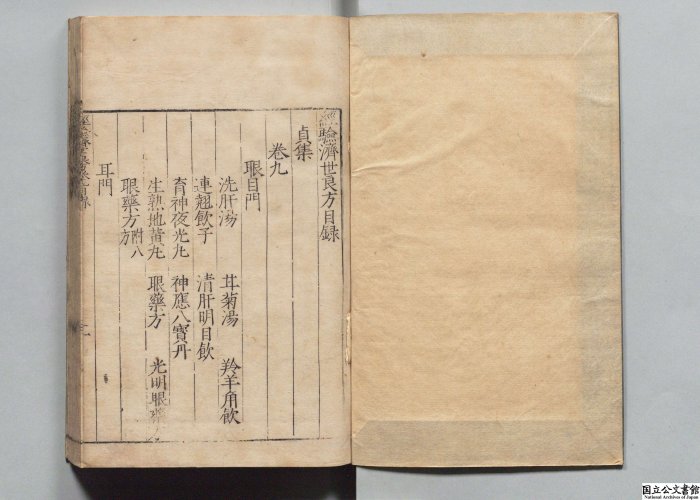 經驗濟世良方目錄
貞集
卷九
眼目門
洗肝湯 甘菊湯 羚羊角飲
連翹飲子 清肝明目飲
育神夜光丸 神應八寶丹
生熟地黃丸 眼藥方 光明眼藥
眼藥方附八方
耳門
国立公文書館
National Archives of Japan